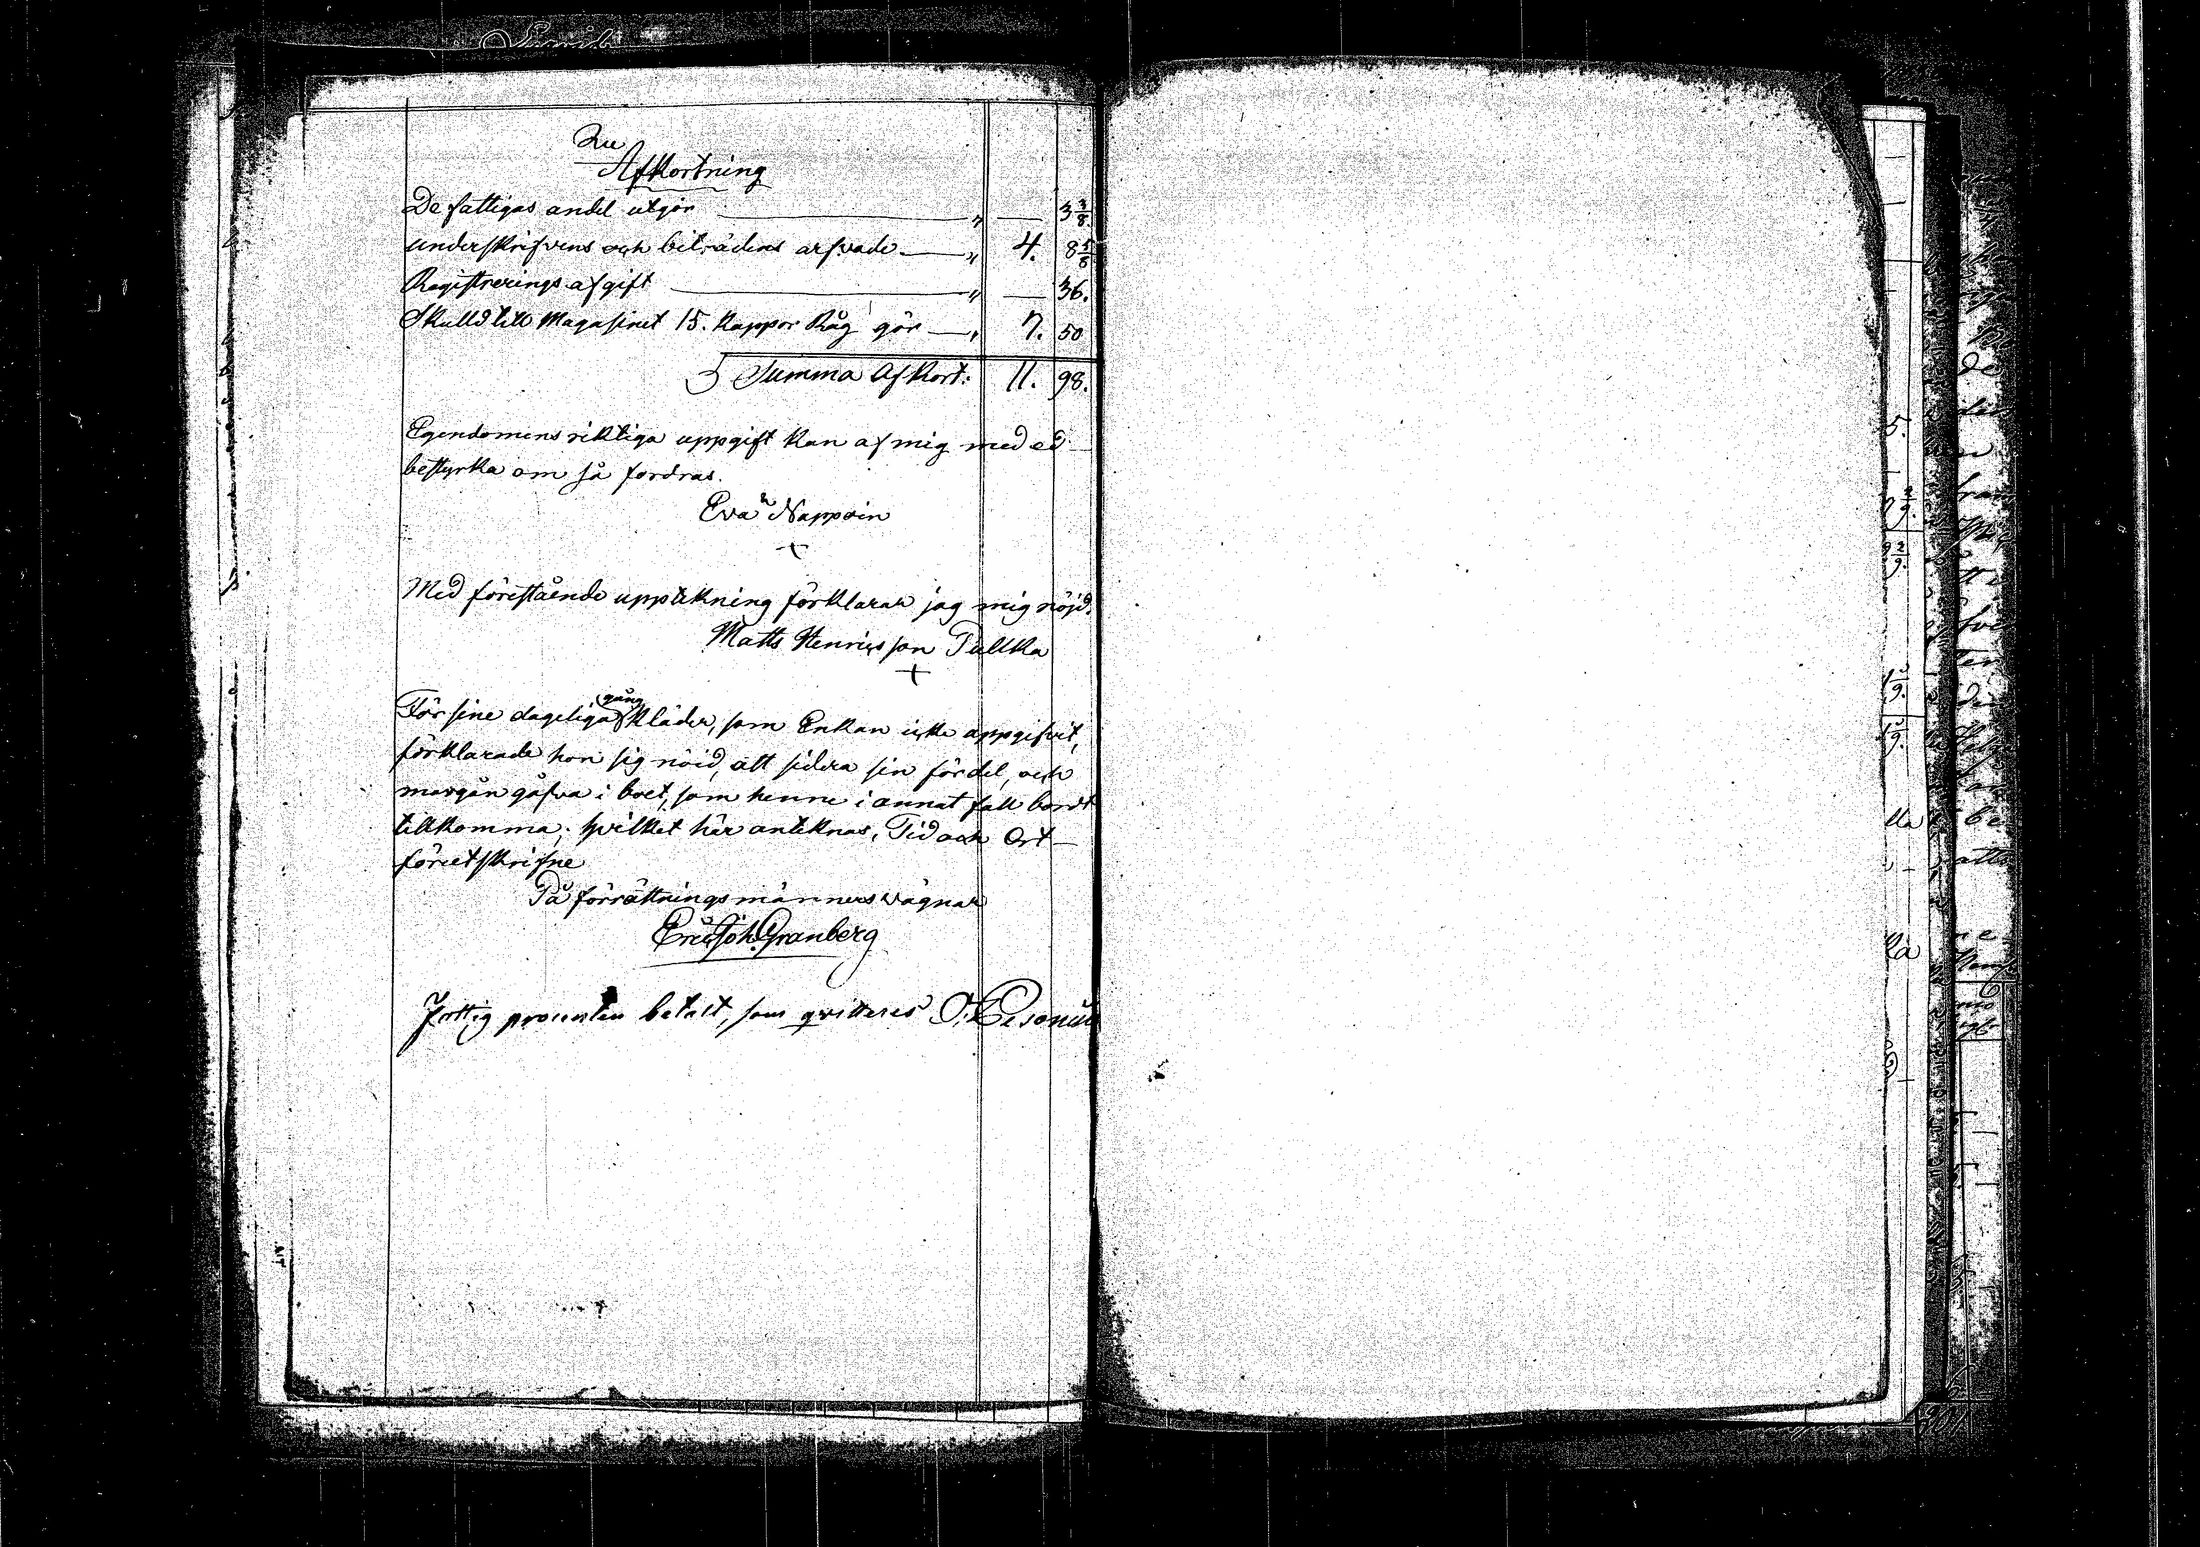 Afkortning
De fattigas andel utgör " — 3 3/8
underskrifvens och biträdens arfvade " 4. 8 5/8
Registrerings afgift " — 36.
Skulld till Magasinet 15. kappor Råg gör " 7. 50
Summa Afkort: 11. 98.
Egendomens riktiga uppgift kan af mig med ed
bestyrka om så fordras.
Eva Nappoin
+
Med förestående upptekning förklarar jag mig nöjd.
Matts Henricsson Pullka
+
För sine dageliga gång kläder, som Enkan icke uppgifvit,
förklarade hon sig nöid, att sidera sin fördel, och
morgångåfva i boet, som henne i annat fall bordt
tillkomma; hvilket här anteknas, Tid och Ort
föruetskrifne
På förrättningsmänners vägnar
Eric Joh. Granberg
Fattig procenten betalt, som qvitteres